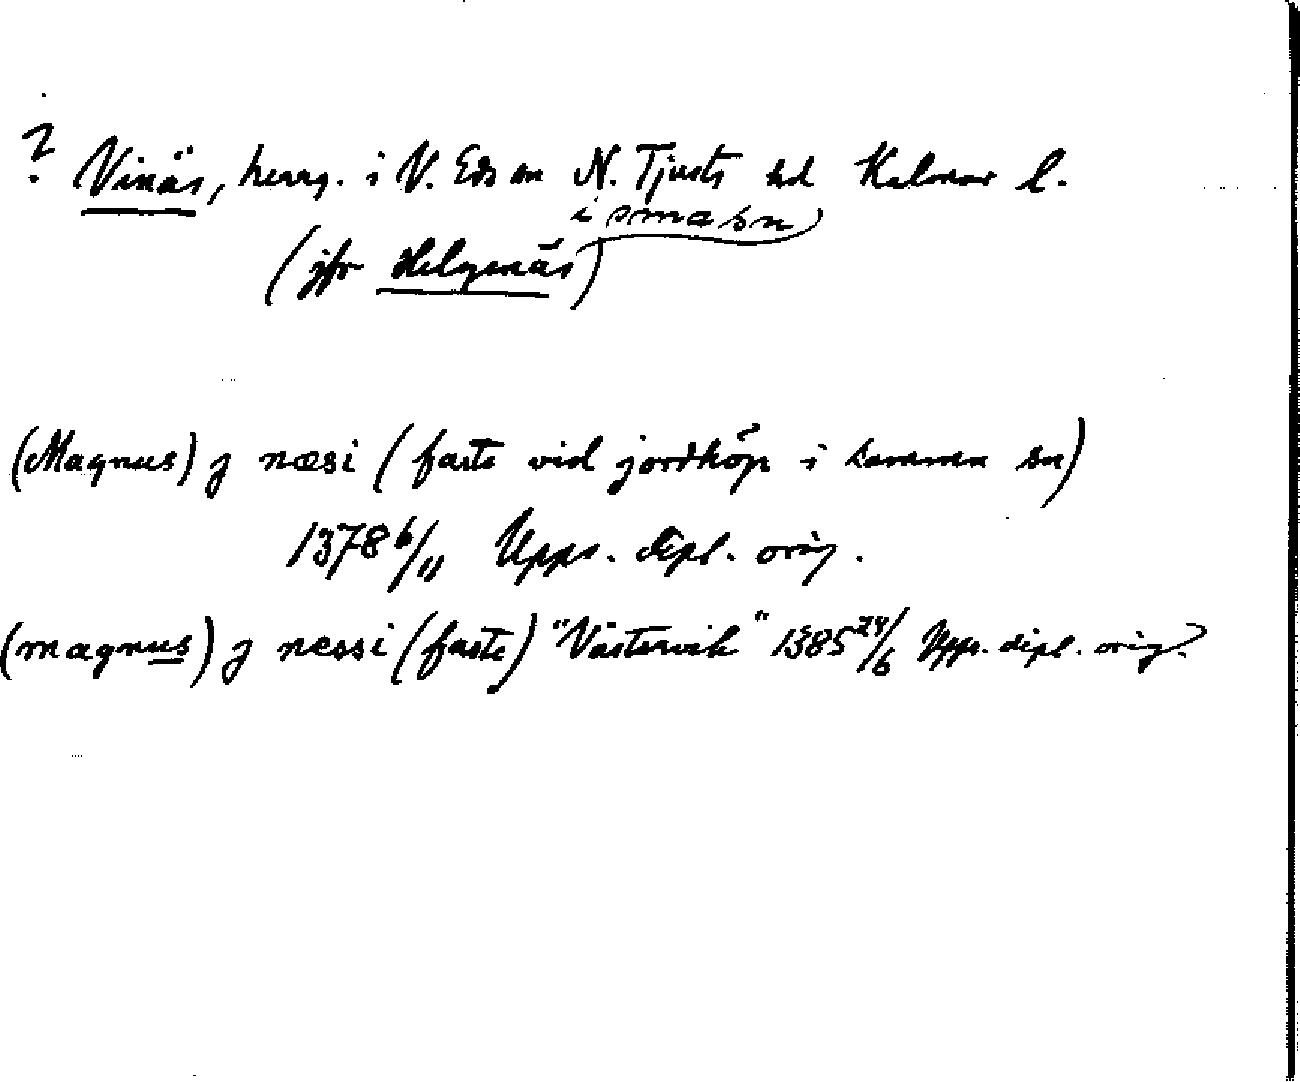 ? Vinäs, herrg. i V. Eds sn N. Tjusts hd Kalmar l.
i sma sn
(jfr Helgenäs)
(Magnus) j næsi (faste vid jordköp i samma sn)
1378 6/11 Upps. dipl. orig.
(magnus) j næssi (faste) "Västervik" 1385 24/6 Upps. dipl. orig.